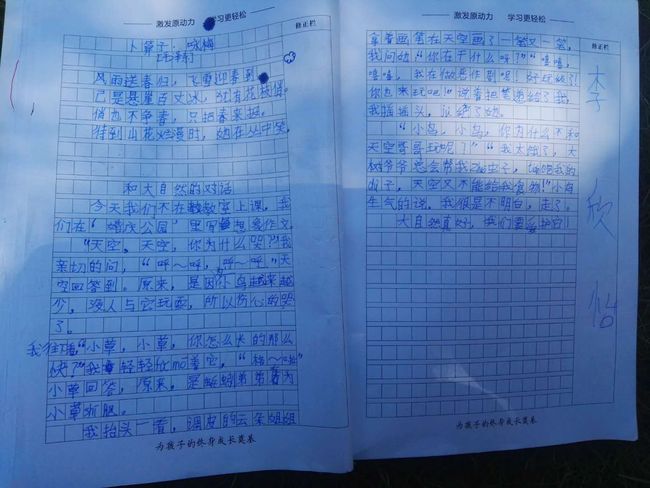 激发原动力 学习更轻松
修正栏
卜算子·咏梅
毛泽东
风雨送春归，飞雪迎春到
已是悬崖百丈冰，犹有花枝俏。
俏也不争春，只把春来报。
待到山花烂漫时，她在丛中笑。
和大自然的对话
今天我们不在教室上课，我
们在“公园”里写想象作文。
“天空，天空，你为什么哭？”我
亲切的问，“呼～呼，呼～呼”天
空回答到。原来，是因小鸟越来越
少，没人与它玩耍，所以伤心的哭
了。
我往下看，“小草，小草，你怎么长的那么
快？”我轻轻的mo着它，
小草回答，原来，是蚯蚓弟弟为
小草
我抬头一看，调皮的云朵姐姐
为孩子的终身成长奠基
激发原动力 学习更轻松
修正栏
拿着画笔在天空画了一笔又一笔，
我问她“你在干什么呀？”“嘻嘻，
嘻嘻，我在做恶作剧呢！好玩的
你也来玩吧”说着把笔递给了我，
我摇摇头，拒绝了她。
“小鸟，小鸟，你为什么不和
天空哥哥玩呢？”“我太饿了，大
树爷爷总会帮我虫子，
天空又不能给我食物！”小鸟
生气的说，我很是不明白，走了。
大自然真好，我们要保护它！
李
欣
怡
为孩子的终身成长奠基